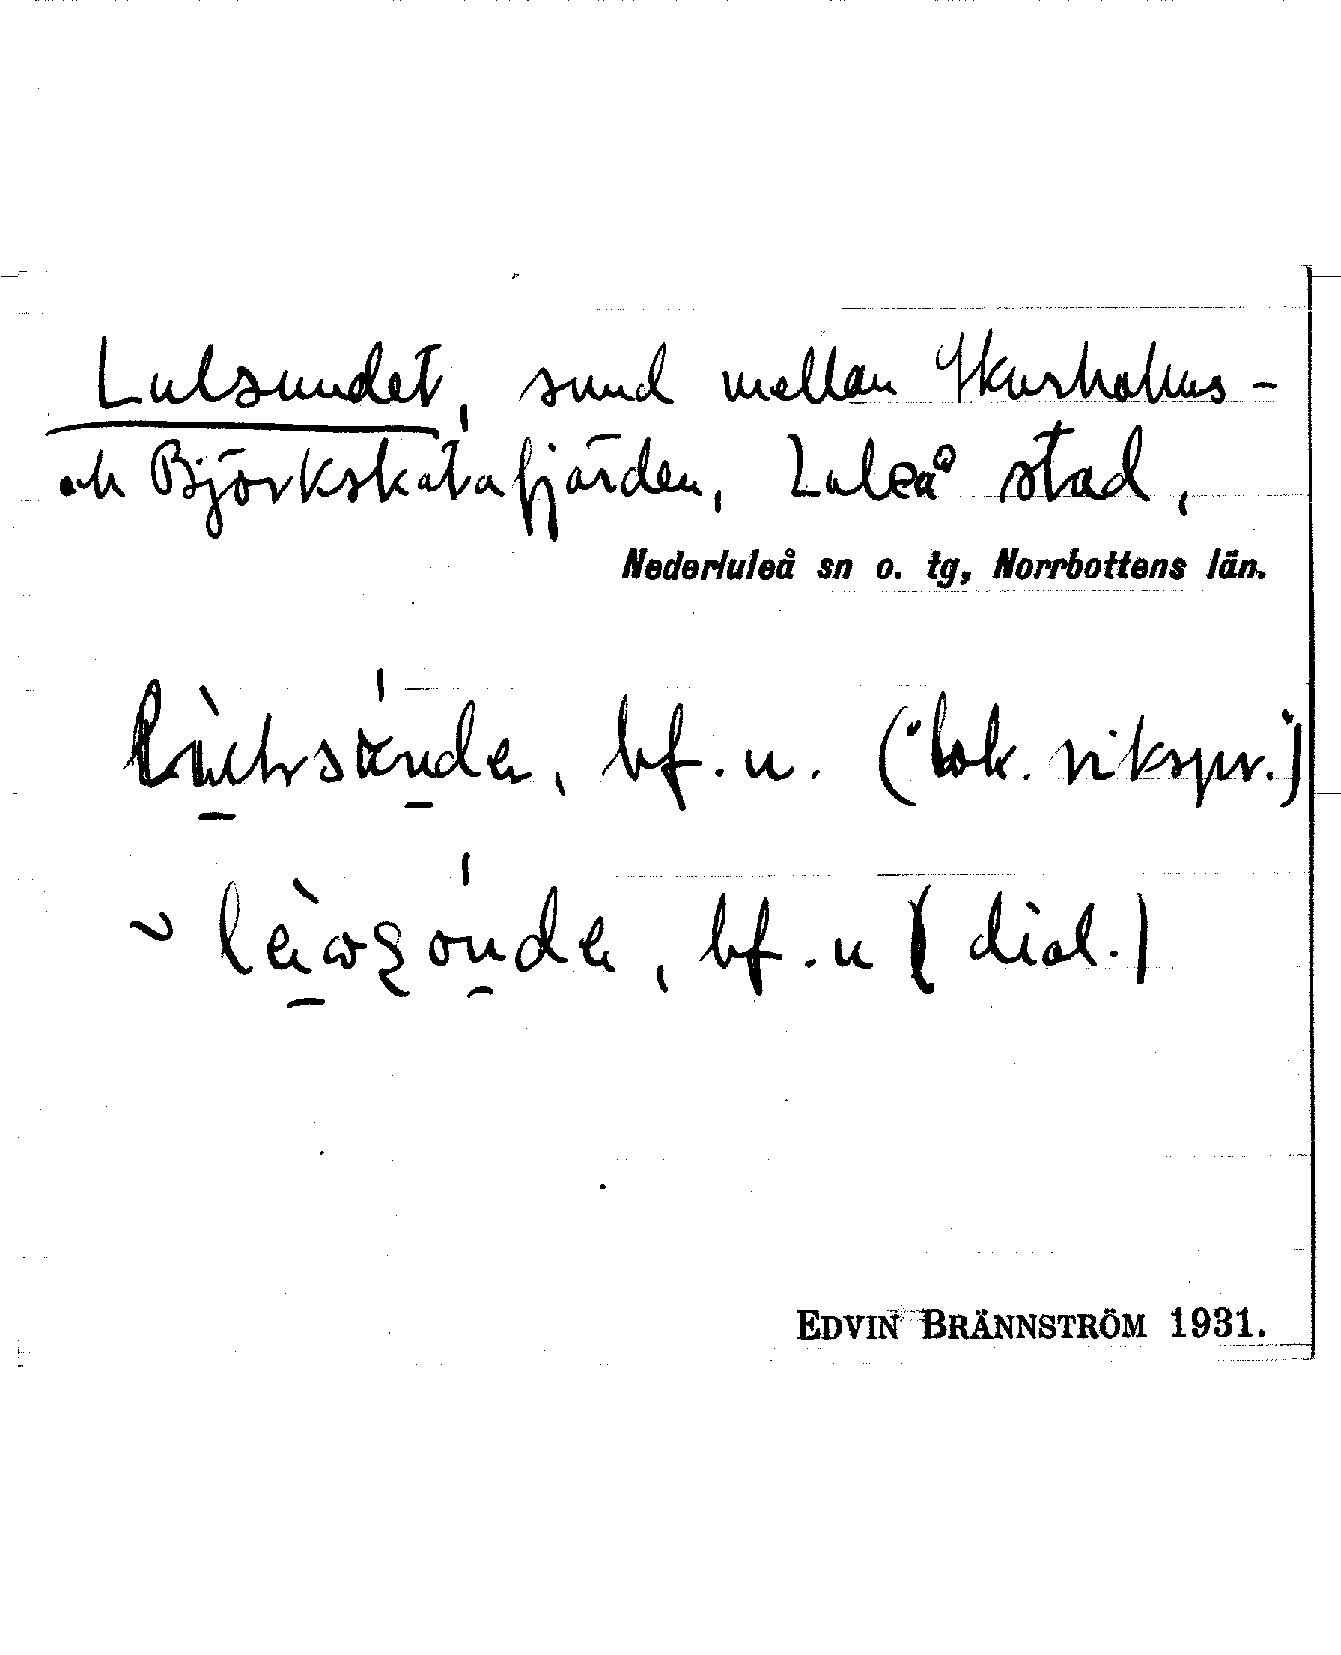 Lulsundet, sund mellan Skurholms-
och Björkskatafjärden, Luleå stad,
Nederluleå sn o. tg, Norrbottens län.
bf. n. ("lok. rikspr.")
~ bf. n (dial.)
EDVIN BRÄNNSTRÖM 1931.